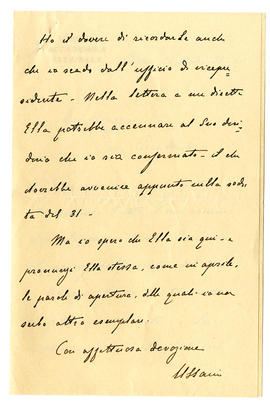 Ho il dovere di ricordarle anche
che io scado dall'ufficio di vicepre
sidente - Nella lettera a me diretta
Ella potrebbe accennare al Suo desi-
derio che io sia confermato - il che
dovrebbe avvenire appunto nella sedu-
ta del 31 -
Ma io spero che Ella sia qui - e
pronunzi Ella stessa, come in aprile,
le parole di apertura, delle quali io non
serbo altro esemplare.
Con affettuosa devozione
Ussani